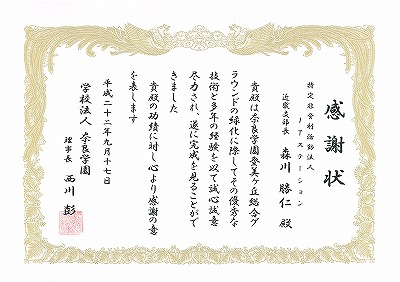 感謝状
特定非営利活動法人
ITステーション
近畿支部長 森川勝仁殿
貴殿は奈良学園登美ヶ丘総合グ
ラウンドの緑化に際してその優秀な
技術と多年の経験を以て誠心誠意
尽力され、遂に完成を見ることがで
きました
貴殿の功績に対し心より感謝の意
を表します
平成二十二年九月十七日
学校法人 奈良学園
理事長 西川彭